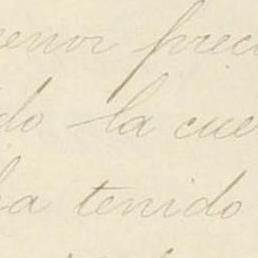 menor preci
do la cue
ha tenido